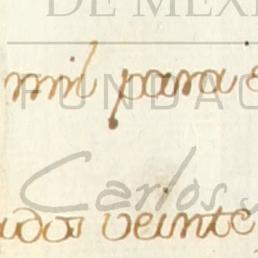 DE MÉXI
mil para
FUNDAC
Carlos
idos veinte